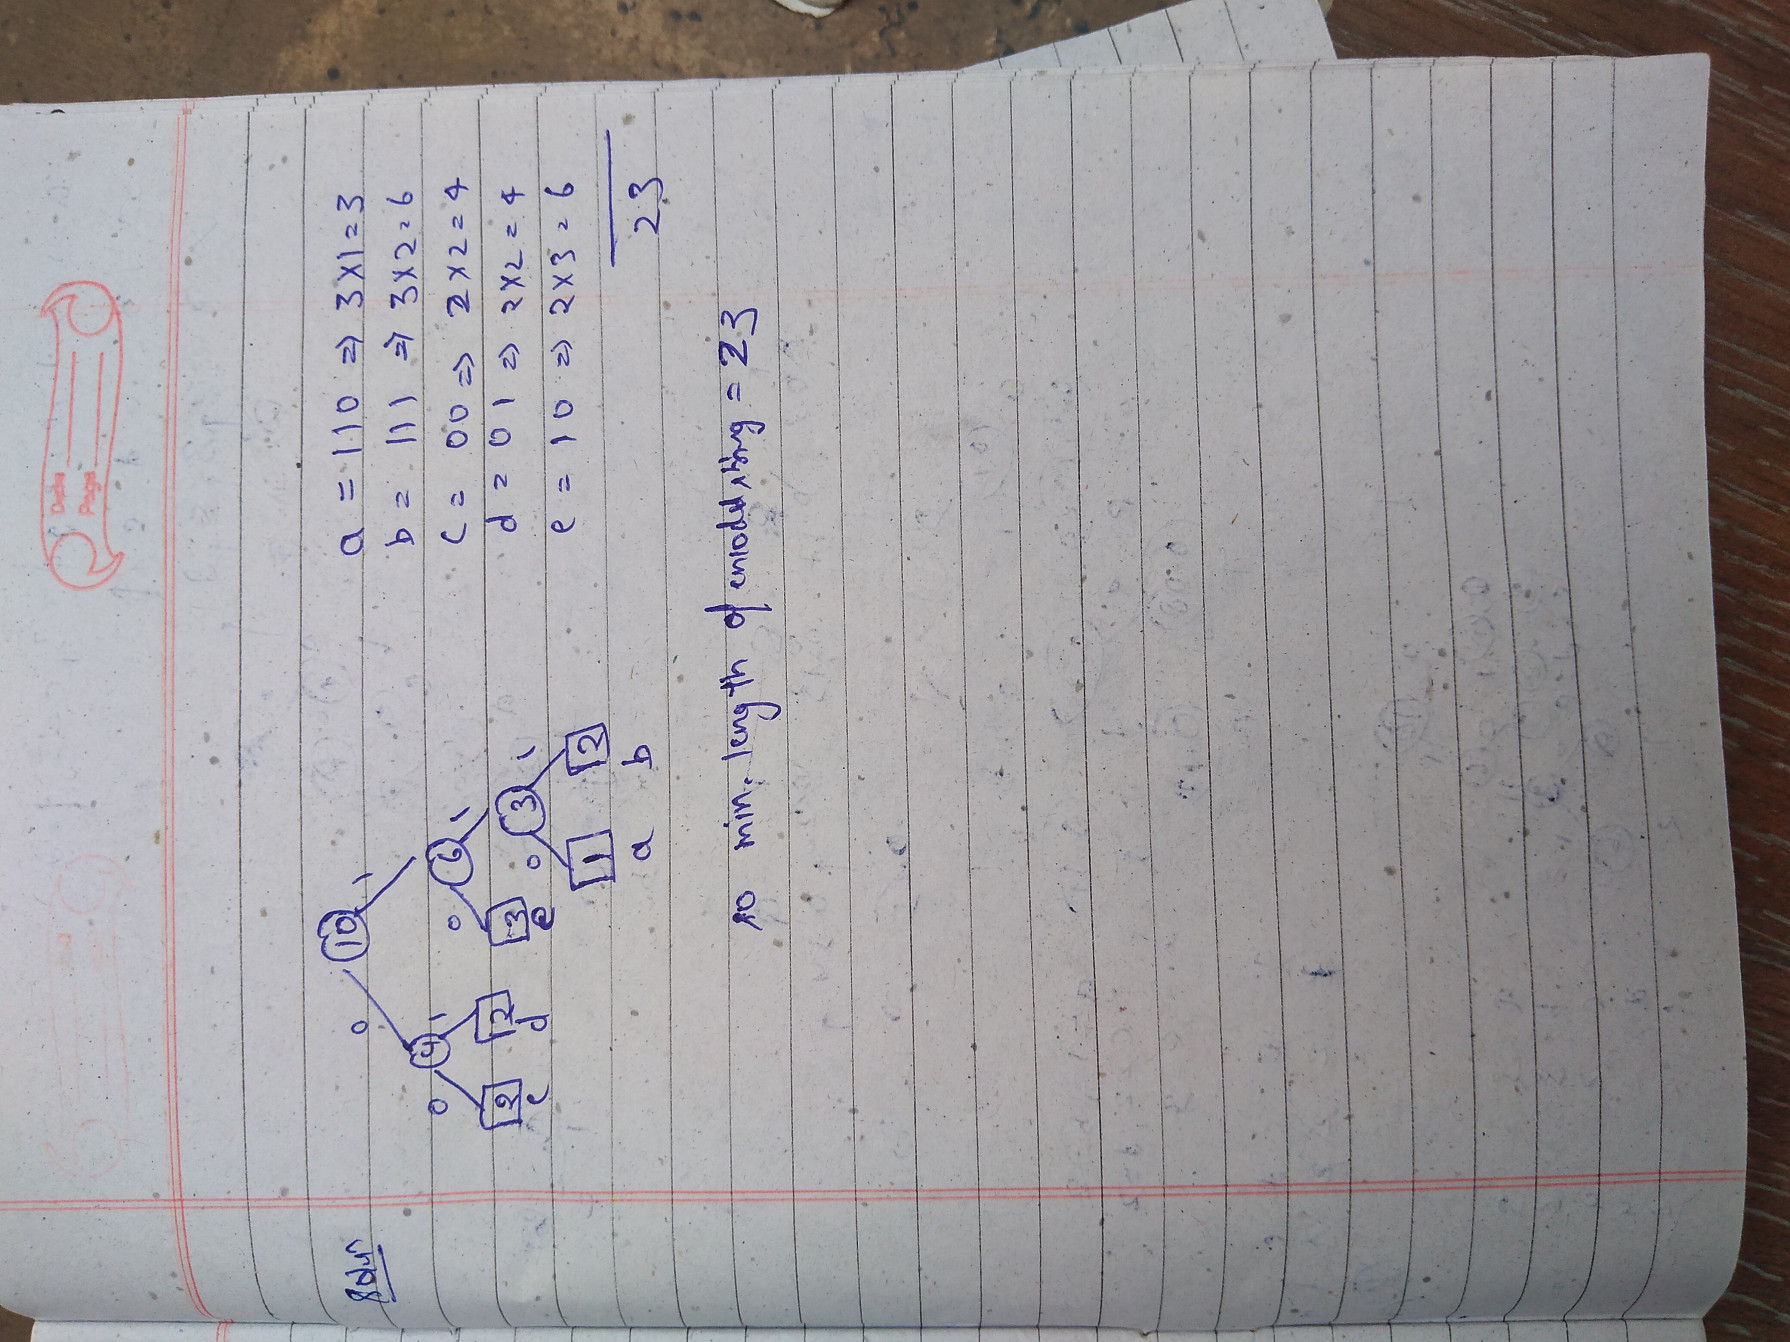 Date
Page
Soln
10
0 1
4 6
0 1 0 1
2 2 3 3
c d e 0 1
1 2
a b
a = 110 ⇒ 3×1 = 3
b = 111 ⇒ 3×2 = 6
c = 00 ⇒ 2×2 = 4
d = 01 ⇒ 2×2 = 4
e = 10 ⇒ 2×3 = 6
23
so min. length of encoded string = 23